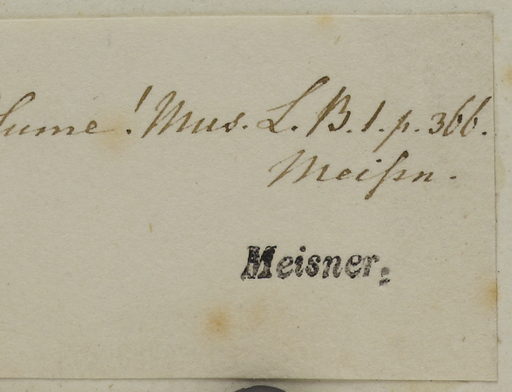 lume! Mus. L. B. 1. p. 366.
Meissn.
Meisner.